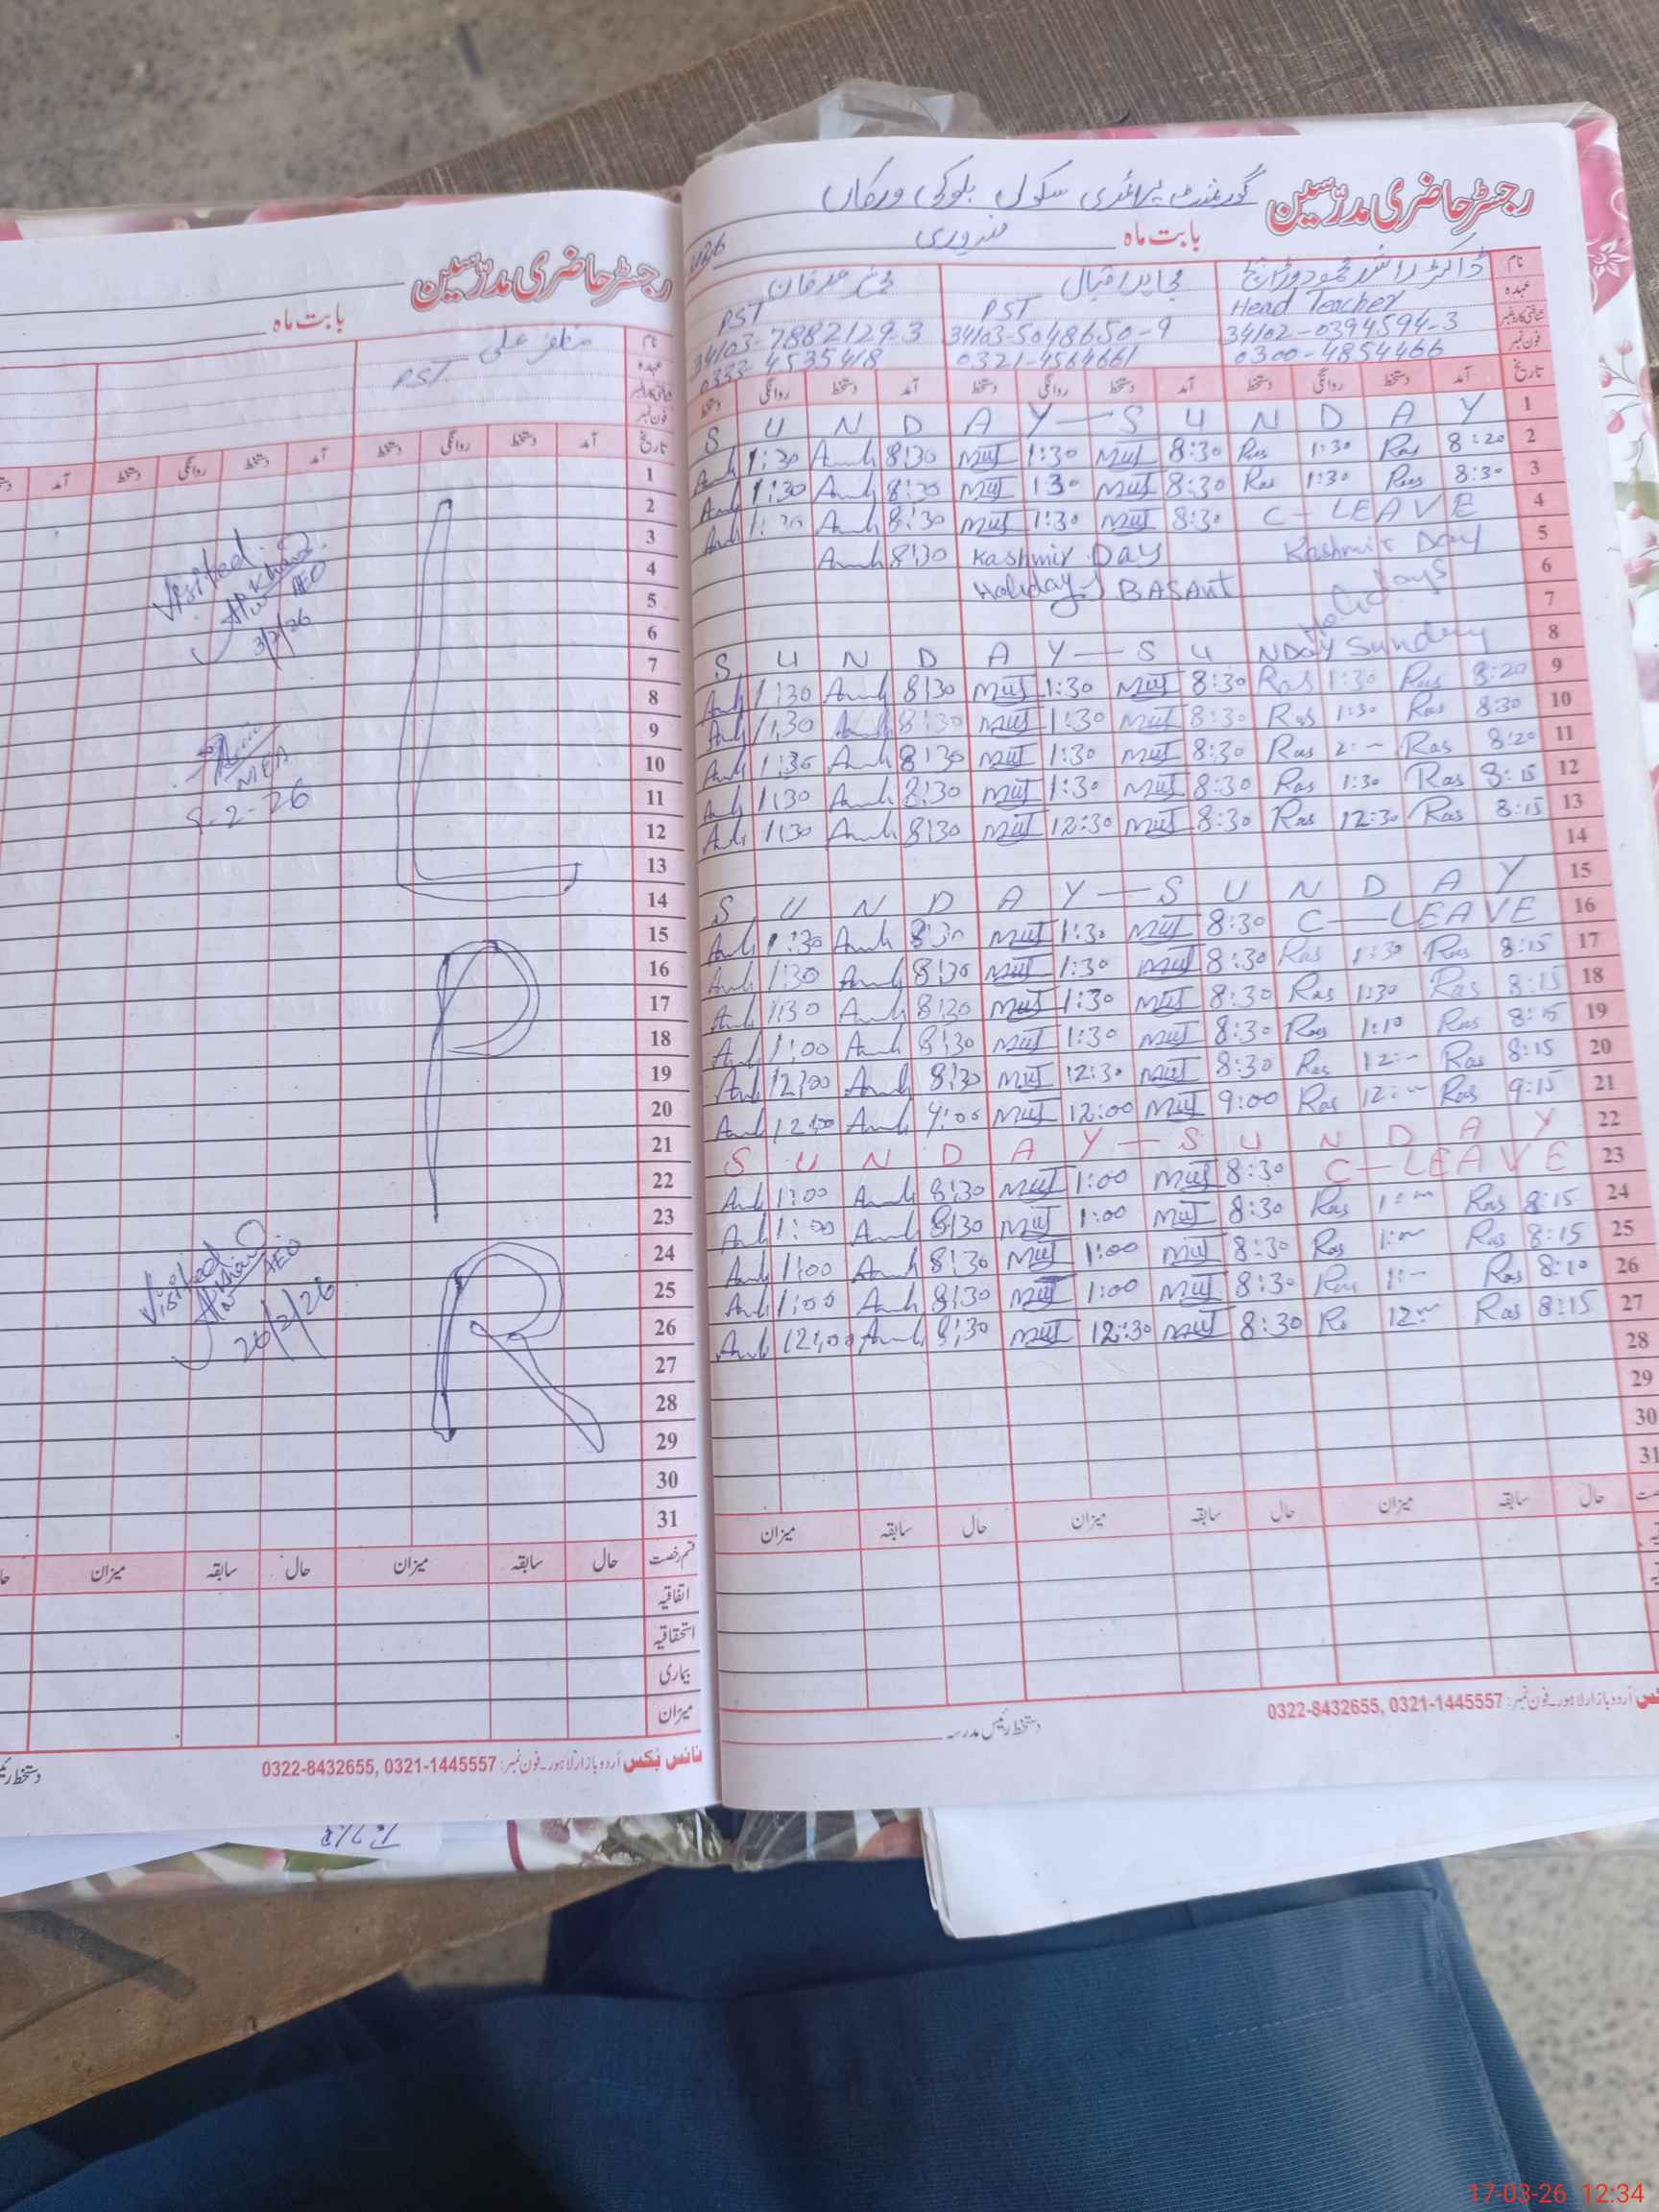 رجسٹر حاضری مدرّسین گورنمنٹ پرائمری سکول بلوکی ورکاں
بابت ماہ فروری 2026
نام ڈاکٹر راشد محمود وڑائچ
عہدہ Head Teacher PST PST
شناختی کارڈ نمبر 34102-0394594-3 34103-5048650-9 34103-7882129-3
فون نمبر 0300-4854466 0321-4564661 0333-4535418
تاریخ آمد دستخط روانگی دستخط آمد دستخط روانگی دستخط آمد دستخط روانگی دستخط
1 S U N D A Y — S U N D A Y
2 8:20 Ras 1:30 Ras 8:30 Muj 1:30 Muj 8:30 1:30
3 8:30 Ras 1:30 Ras 8:30 Muj 1:30 Muj 8:30 1:30
4 C - LEAVE 8:30 Muj 1:30 Muj 8:30 1:30
5 Kashmir Day Kashmir Day 8:30
6 Holidays Holiday BASANT
7
8 S U N D A Y — S U NDAY Sunday
9 8:20 Ras 1:30 Ras 8:30 Muj 1:30 Muj 8:30 1:30
10 8:30 Ras 1:30 Ras 8:30 Muj 1:30 Muj 8:30 1:30
11 8:20 Ras 2:— Ras 8:30 Muj 1:30 Muj 8:30 1:30
12 8:15 Ras 1:30 Ras 8:30 Muj 1:30 Muj 8:30 1:30
13 8:15 Ras 12:30 Ras 8:30 Muj 12:30 Muj 8:30 1:30
14
15 S U N D A Y — S U N D A Y
16 C — LEAVE 8:30 Muj 1:30 Muj 8:30 1:30
17 8:15 Ras 1:30 Ras 8:30 Muj 1:30 Muj 8:30 1:30
18 8:15 Ras 1:30 Ras 8:30 Muj 1:30 Muj 8:20 1:30
19 8:15 Ras 1:10 Ras 8:30 Muj 1:30 Muj 8:30 1:00
20 8:15 Ras 12:— Ras 8:30 Muj 12:30 Muj 8:30 12:00
21 9:15 Ras 12:— Ras 9:00 Muj 12:00 Muj 9:00 12:00
22 S U N D A Y — S U N D A Y
23 C — LEAVE 8:30 Muj 1:00 Muj 8:30 1:00
24 8:15 Ras 1:— Ras 8:30 Muj 1:00 Muj 8:30 1:00
25 8:15 Ras 1:— Ras 8:30 Muj 1:00 Muj 8:30 1:00
26 8:10 Ras 1:— Ras 8:30 Muj 1:00 Muj 8:30 1:00
27 8:15 Ras 12:— Ras 8:30 Muj 12:30 Muj 8:30 12:00
28
29
30
31
حال سابقہ میزان حال سابقہ میزان حال سابقہ میزان
دستخط رئیس مدرسہ
اُردو بازار لاہور۔ فون نمبر: 0322-8432655, 0321-1445557
رجسٹر حاضری مدرّسین
بابت ماہ
نام مظفر علی
عہدہ PST
شناختی کارڈ نمبر
فون نمبر
تاریخ آمد دستخط روانگی دستخط آمد دستخط روانگی دستخط آمد
1
2
3
4
5
6
7
8
9
10
11
12
13
14
15
16
17
18
19
20
21
22
23
24
25
26
27
28
29
30
31
L
P
R
Visited
AEO
3/2/26
MEA
9-2-26
Visited
AEO
20/2/26
قسم رخصت حال سابقہ میزان حال سابقہ میزان
اتفاقیہ
استحقاقیہ
بیماری
میزان
نائس بکس اُردو بازار لاہور۔ فون نمبر: 0322-8432655, 0321-1445557
17-03-26 12:34